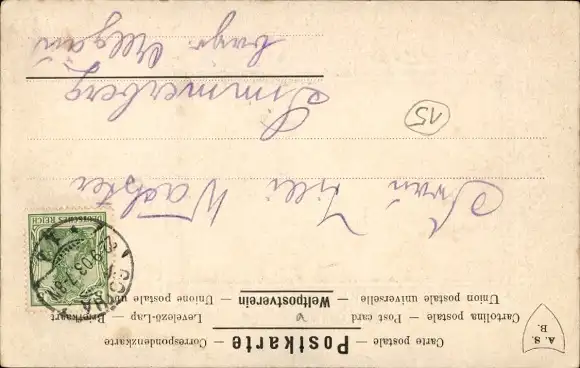 Carte postale — Correspondenzkarte
Postkarte
Cartolina postale — Post card — Levelező-Lap — Briefkaart
Weltpostverein
Union postale universelle — Unione postale
A. S.
B.
DEUTSCHES REICH
GOTHA
Frau Lilli Wachter
Simmerberg
bayr. Allgäu
15